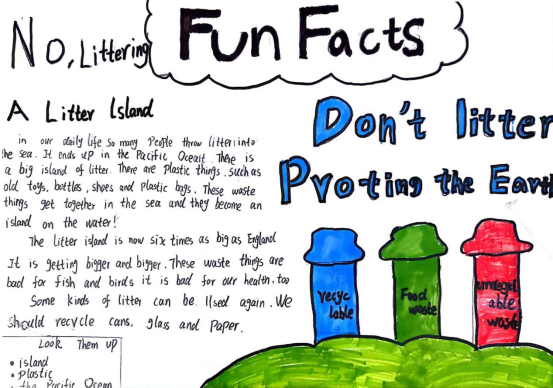 No, Littering
Fun Facts
A Litter Island
in our daily life so many People throw litter into
the sea. It ends up in the Pacific Oceait. There is
a big island of litter. There are Plastic things. such as
old toys, bottles, shoes and plastic bags. These waste
things get together in the sea and they become an
island on the water!
The litter island is now six times as big as England
It is getting bigger and bigger. These waste things are
bad for fish and birds it is bad for our health. too
Some kinds of litter can be Used again. We
should recycle cans, glass and Paper.
Look Them up
• island
• plastic
• the Pacific Ocean
Don't litter
Proting the Earth
recyc
lable
Food
waste
able
waste